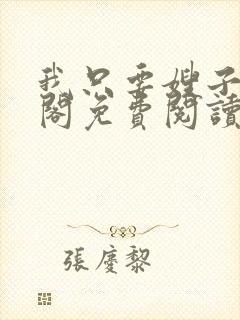 我只要嫂子
閣免費閱讀
張慶黎